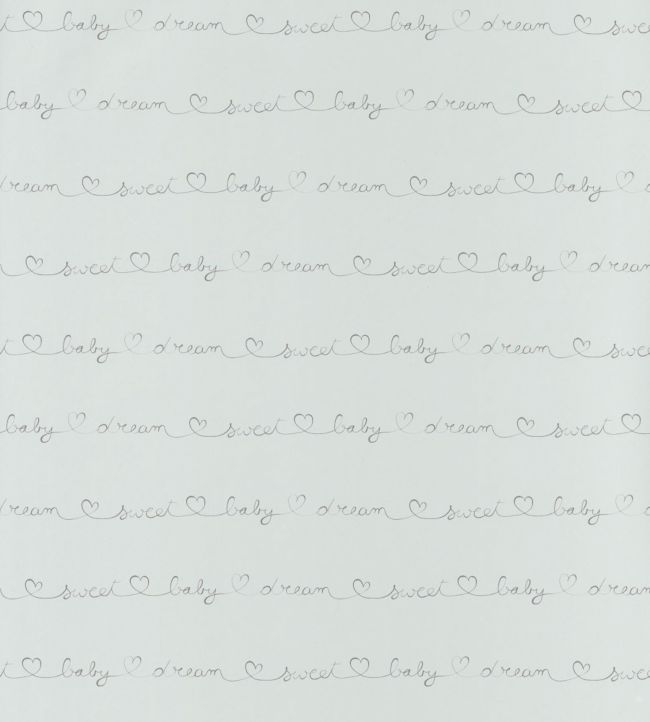 baby dream sweet baby dream
baby dream sweet baby dream sweet
sweet baby dream sweet baby
sweet baby dream sweet baby
baby dream sweet baby dream
baby dream sweet baby dream sweet
sweet baby dream sweet baby
sweet baby dream sweet baby
baby dream sweet baby dream